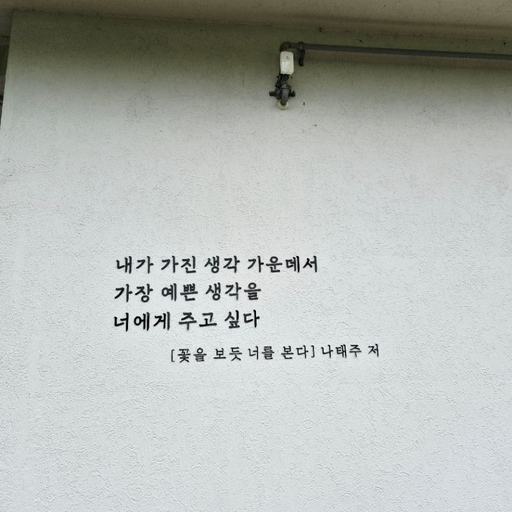 내가 가진 생각 가운데서
가장 예쁜 생각을
너에게 주고 싶다
[꽃을 보듯 너를 본다] 나태주 저